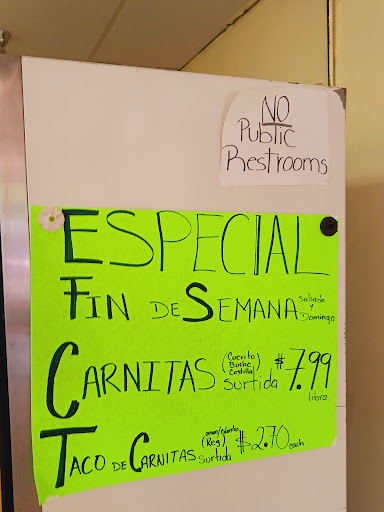 NO
Public
Restrooms
ESPECIAL
FIN DE SEMANA Sabado y Domingo
CARNITAS (Cuerito Buche Costilla) Surtida $7.99 libra
TACO DE CARNITAS (Reg) Surtida $2.70 each